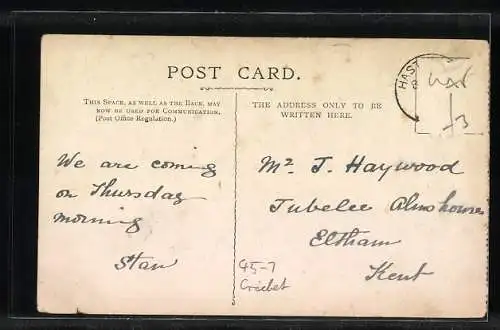 POST CARD.
THIS SPACE, AS WELL AS THE BACK, MAY
NOW BE USED FOR COMMUNICATION.
(Post Office Regulation.)
THE ADDRESS ONLY TO BE
WRITTEN HERE.
HAST
We are coming
on Thursday
morning
Stan
Mr J. Haywood
Jubelee Almshouses
Eltham
Kent
45-7
Cricket
£3